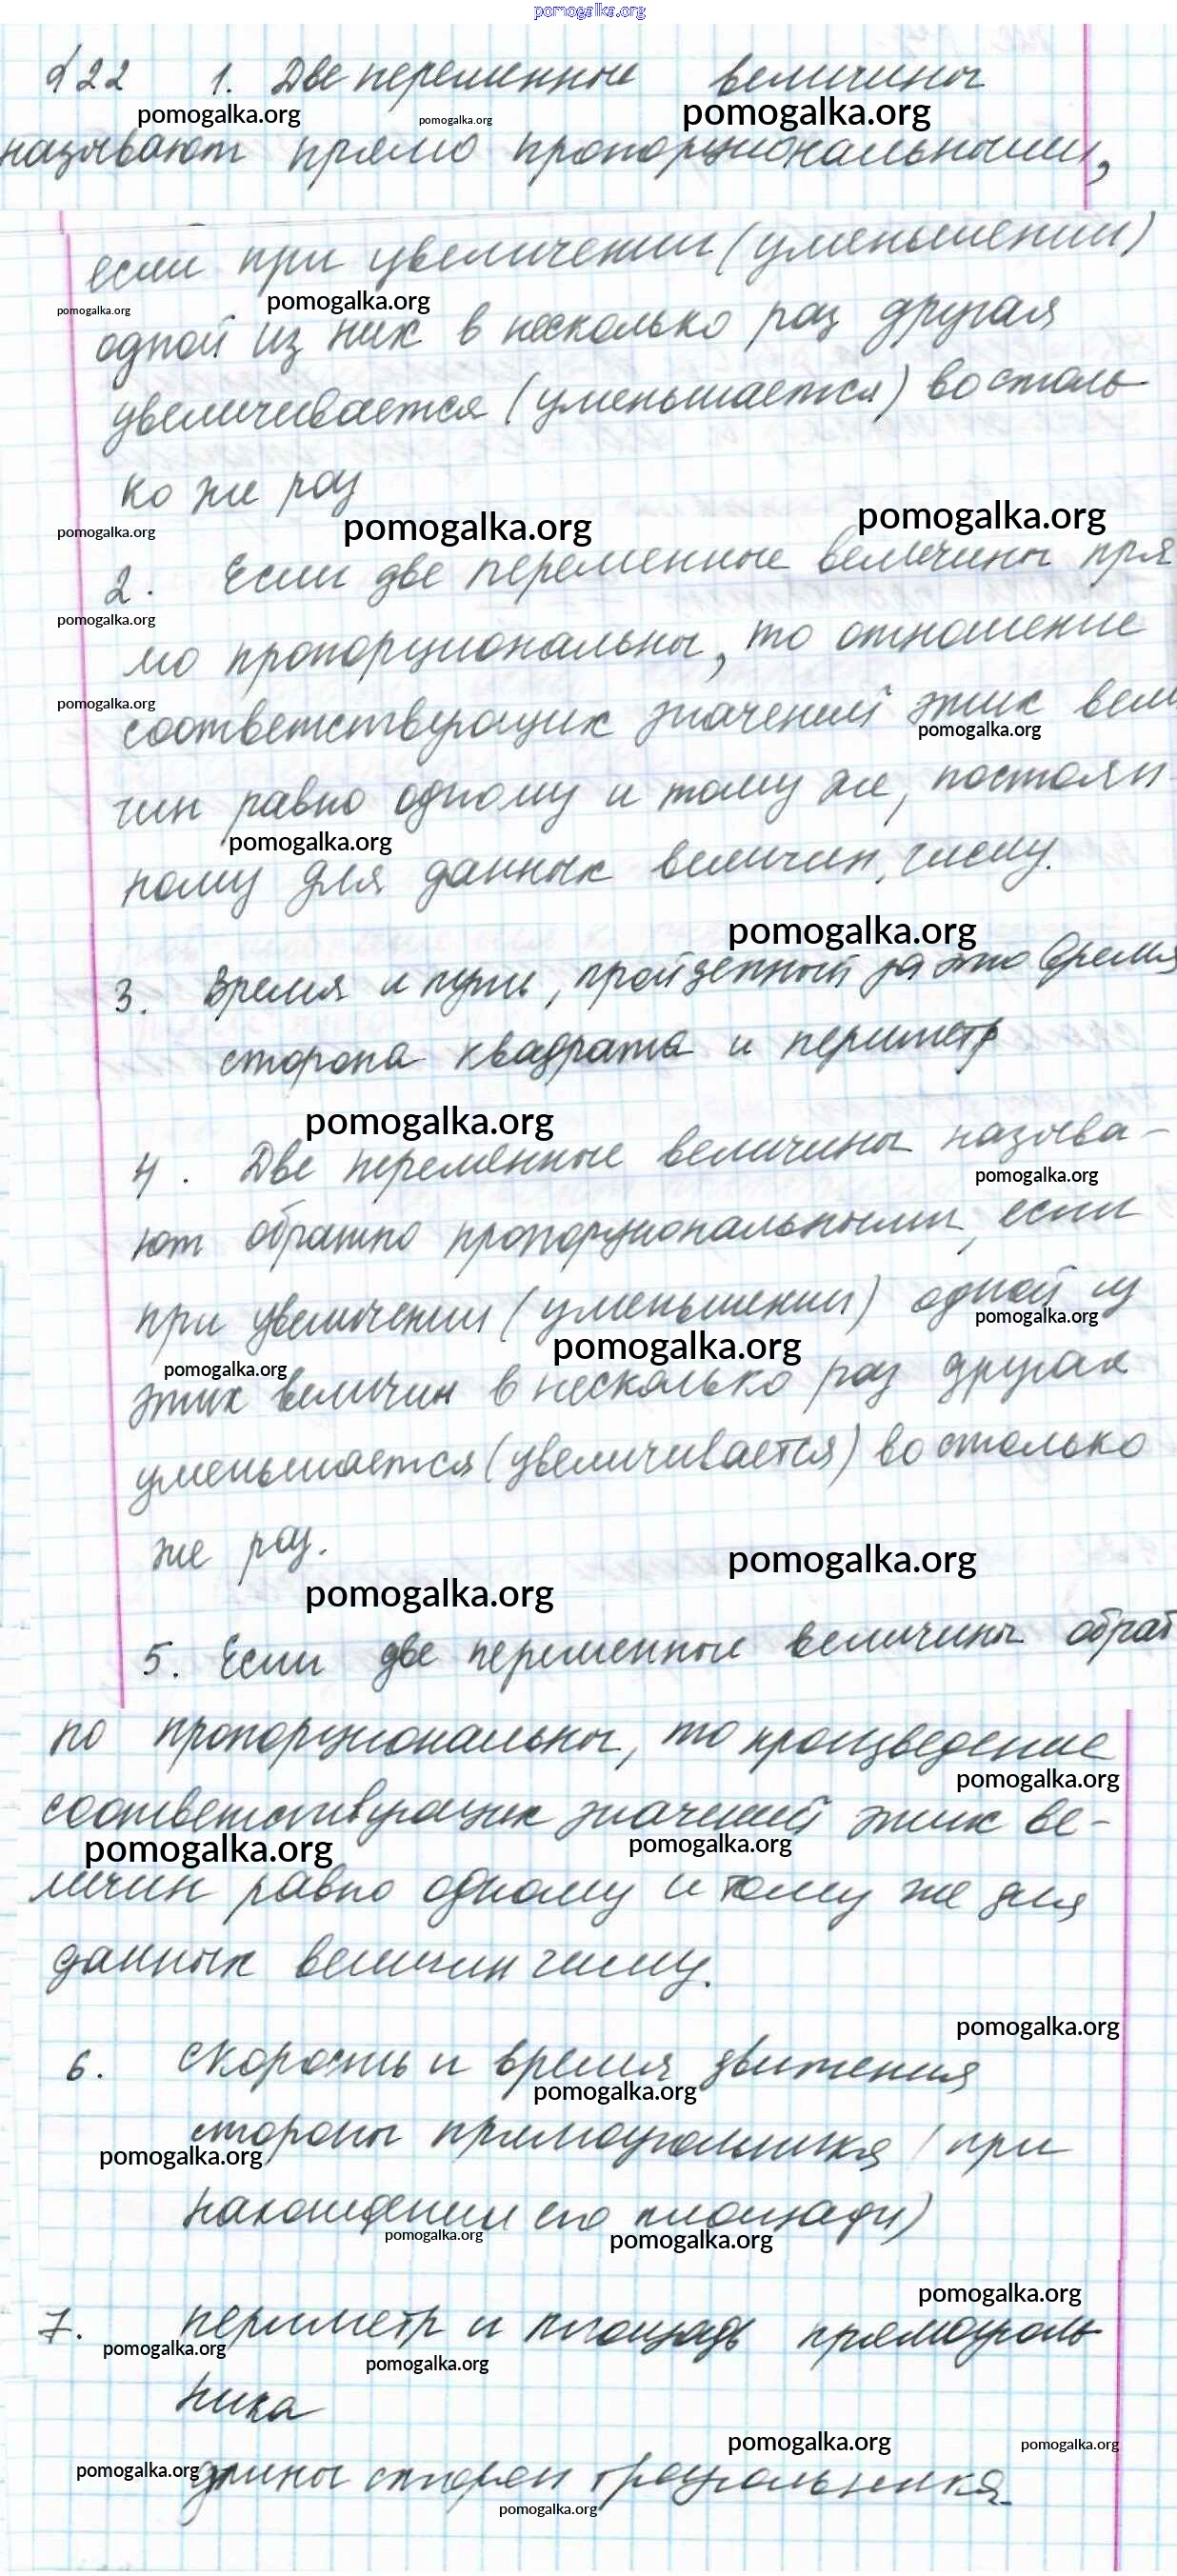 pomogalka.org
§22 1. Две переменные величины
pomogalka.org pomogalka.org pomogalka.org
называют прямо пропорциональными,
если при увеличении (уменьшении)
pomogalka.org pomogalka.org
одной из них в несколько раз другая
увеличивается (уменьшается) во столь
ко же раз
pomogalka.org pomogalka.org pomogalka.org
2. Если две переменные величины пря
pomogalka.org
мо пропорциональны, то отношение
pomogalka.org
соответствующих значений этих вели
pomogalka.org
чин равно одному и тому же, постоян
pomogalka.org
ному для данных величин, числу.
pomogalka.org
3. Время и путь, пройденный за это время
сторона квадрата и периметр
pomogalka.org
4. Две переменные величины называ-
pomogalka.org
ют обратно пропорциональными, если
при увеличении (уменьшении) одной из
pomogalka.org
pomogalka.org pomogalka.org
этих величин в несколько раз другая
уменьшается (увеличивается) во столько
же раз.
pomogalka.org
pomogalka.org
5. Если две переменные величины обрат
но пропорциональны, то произведение
pomogalka.org
соответствующих значений этих ве-
pomogalka.org pomogalka.org
личин равно одному и тому же для
данных величин числу.
pomogalka.org
6. скорость и время движения
pomogalka.org
стороны прямоугольника (при
pomogalka.org
нахождении его площади)
pomogalka.org pomogalka.org
pomogalka.org
7. периметр и площадь прямоуголь
pomogalka.org pomogalka.org
ника
pomogalka.org pomogalka.org
pomogalka.org длины сторон треугольника.
pomogalka.org